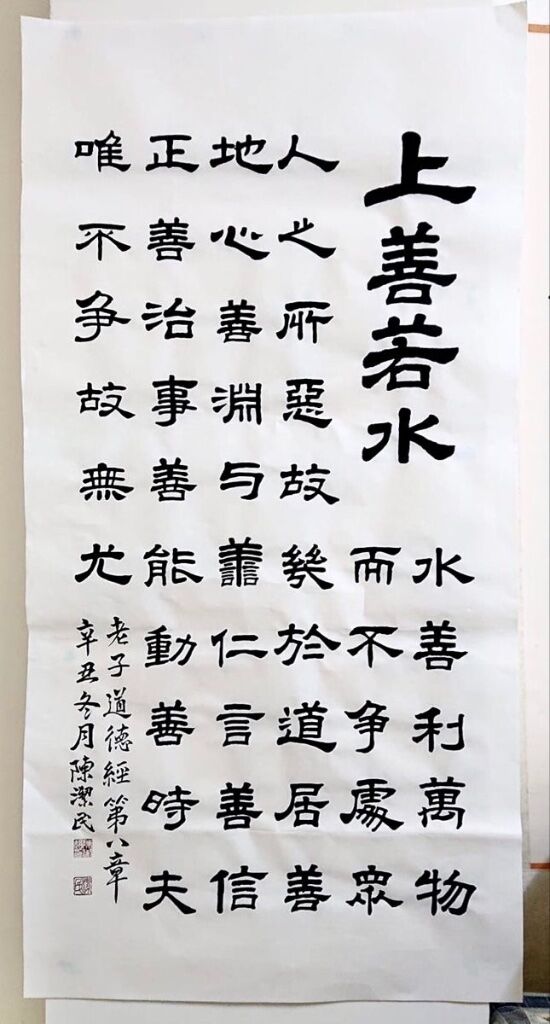 上善若水
水善利萬物
而不争處眾
人之所惡故幾於道居善
地心善淵与譱仁言善信
正善治事善能動善時夫
唯不争故無尤
老子道德經第八章
辛丑冬月陳潔民